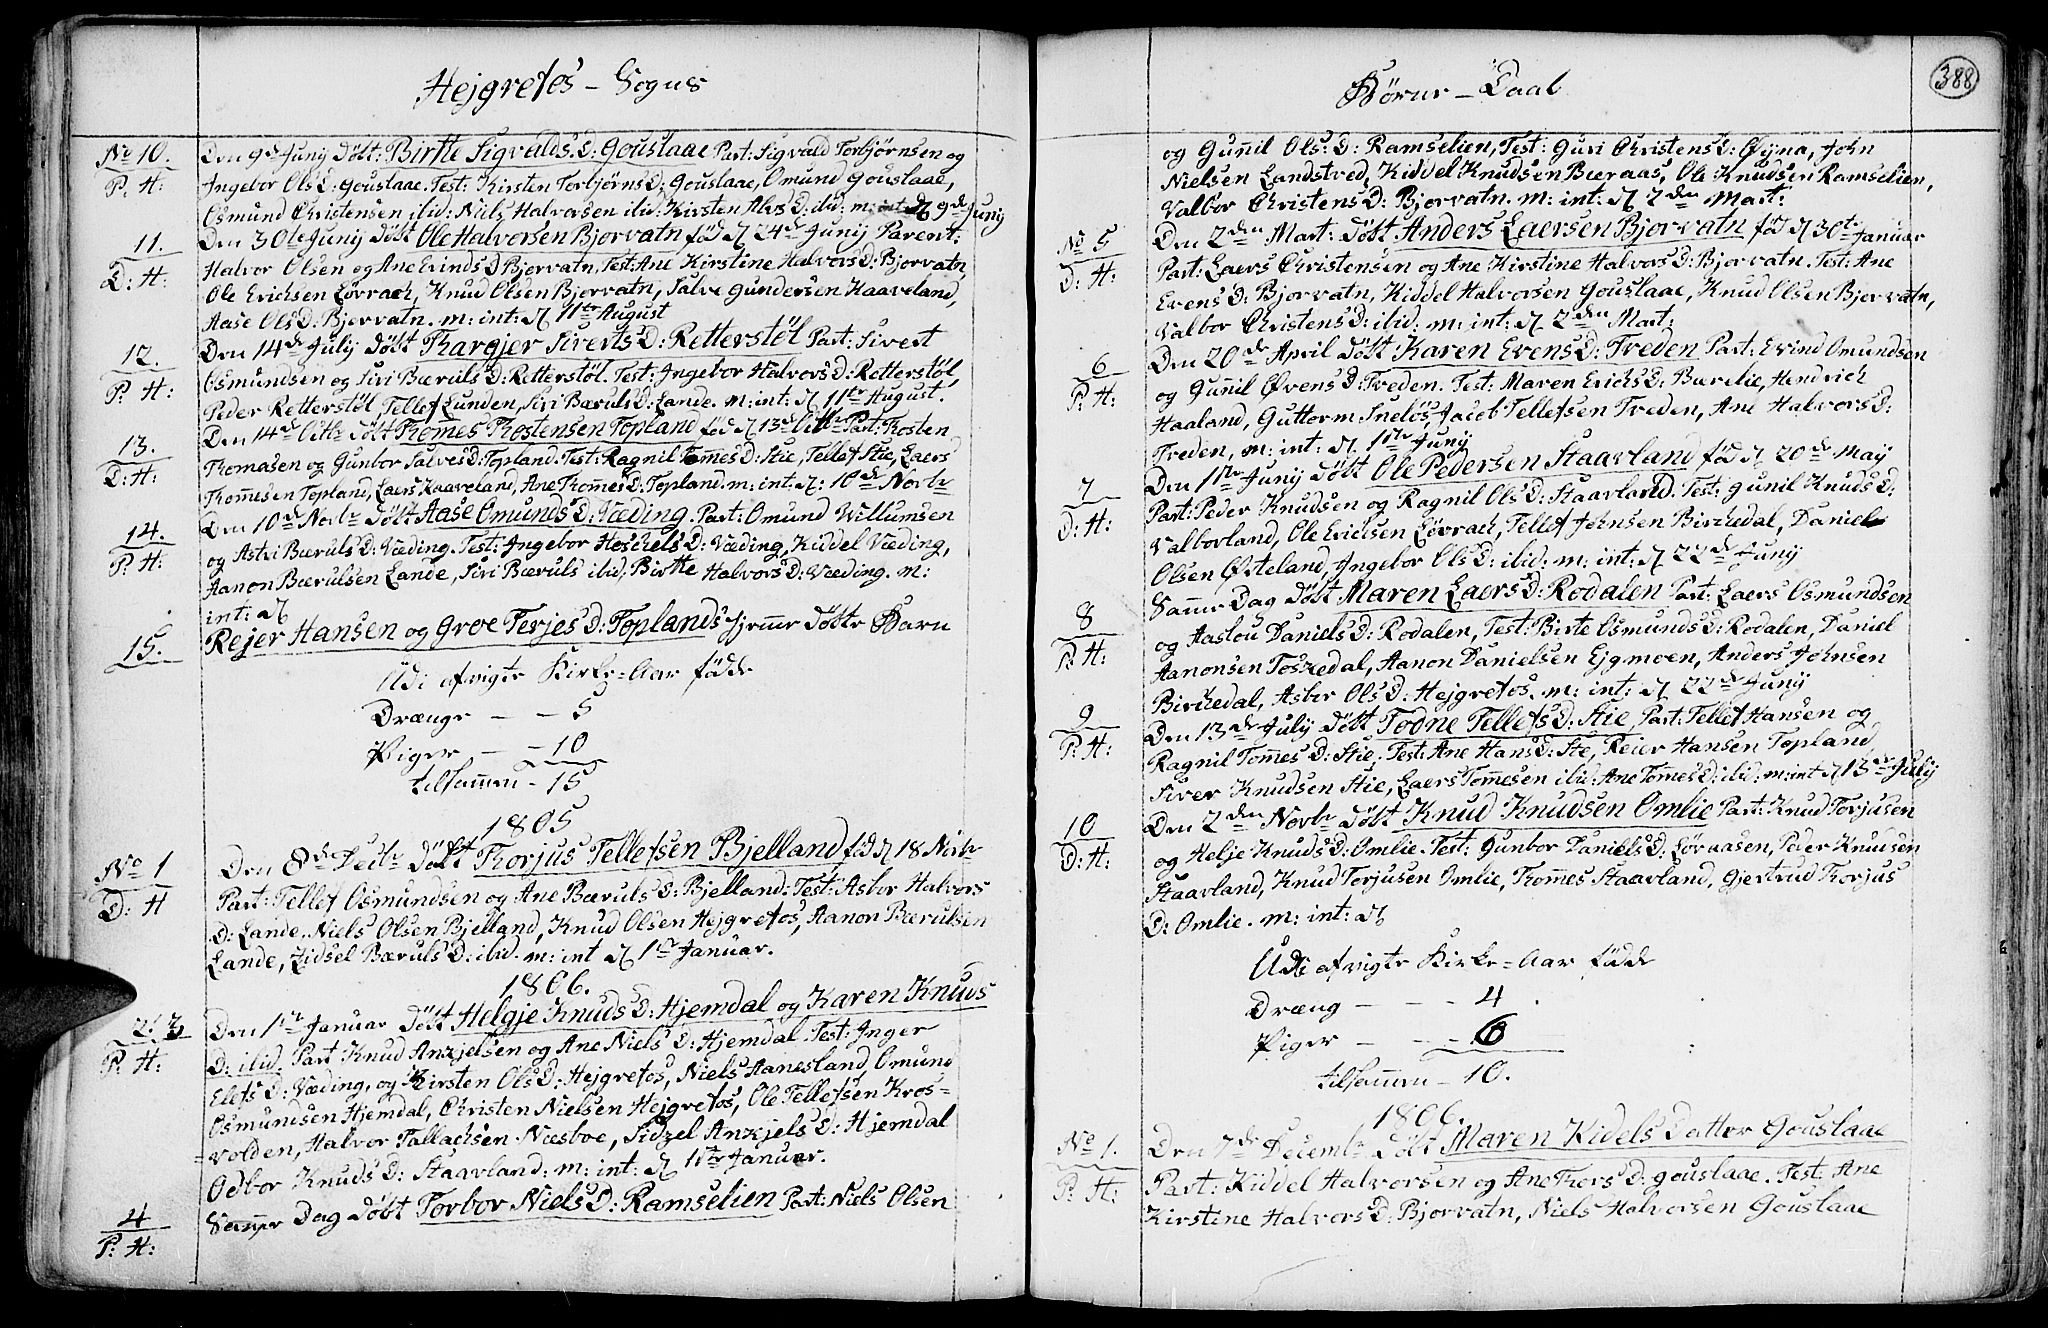 Hejgrefos – Sogns
No 10. Den 9de Junij døbt: Birtte Sigvalds. D: Gouslaae Part: Sigvald Torbjørnsen og
P: H: Ingebor Ols D: Gouslaae. Test: Kirsten Torbjørns D: Gouslaae, Omund Gouslaae,
Osmund Christensen ibid: Niels Halvorsen ibid: Kirsten Alvs D: ibid: m: int: d 9de Junij
11. Den 30te Junij døbt Ole Halvorsen Bjorvatn fød d 24de Junij Parent:
D: H: Halvor Olsen og Ane Evinds D Bjorvatn, Test: Ane Kirstine Halvors D: Bjorvatn
Ole Erichsen Løvrach, Knud Olsen Bjorvatn, Salve Gundersen Kaaveland,
Aase Ols D: Bjorvatn. m: int: d 11te August
12. Den 14de July døbt Thargjer Siverts D: Retterstøl Part: Sivert
P: H: Osmundsen og Siri Bæruls D: Retterstøl. Test: Ingebor Halvors D: Retterstøl,
Peder Retterstøl, Tellef Lunden, Siri Bæruls D: Lande. m: int: d 11te August.
13. Den 14de Octbr døbt Thomes Thostensen Topland fød d 13de Octbr Part: Thosten
D: H: Thomasen og Gunbor Salves D: Topland. Test: Ragnil Tomes D: Stie, Tellef Stie, Laers
Thomesen Topland, Laers Kaaveland, Ane Thomes D: Topland. m: int: d: 10de Novbr
14. Den 10de Novbr døbt Aase Omunds D: Væding. Part: Omund Willumsen
P: H: og Astri Bæruls D: Væding. Test: Ingebor Heschels D: Væding, Kiddel Væding,
Aanon Bærulsen Lande, Siri Bæruls ibid; Birtte Halvors D: Væding. m:
int: d
15. Rejer Hansen og Groe Terjes D: Toplands hjeme døbte Barn
Udi afvigte Kirke-Aar fødde
Drænge – – 5
Piger – – 10
tilsamen – 15
1805
No 1 Den 8de Decbr døbt Thorjus Tellefsen Bjelland fød d 18 Novbr
D: H Part: Tellef Osmundsen og Ane Bæruls D: Bjelland. Test: Asbor Halvors
D: Lande. Niels Olsen Bjelland, Knud Olsen Hejgrefos, Aanon Bærulsen
Lande, Zidsel Bæruls D: ibid. m: int d 1ste Januar.
1806.
2. 3 Den 1ste Januar døbt Helgje Knuds D: Hjemdal og Karen Knuds
P: H: D: ibid. Part Knud Anzjelsen og Ane Niels D: Hjemdal. Test: Inger
Elefs D: Væding, og Kirsten Ols D: Hejgrefos, Niels Aanesland, Omund
Osmundsen Hjemdal, Christen Nielsen Hejgrefos, Ole Tellefsen Kros-
volden, Halvor Tallachsen Næsboe, Sidzel Anzjels D: Hjemdal
Odbor Knuds D: Staavland: m: int: d 1ste Januar.
4 Samme Dag døbt Torbor Niels D: Ramselien Part: Niels Olsen
P: H:
Hørne – Daal
388
og Gunil Ols: D: Ramselien, Test: Guri Christens D: Øyna, John
Nielsen Landstved, Kiddel Knudsen Bæraas, Ole Knudsen Ramselien,
Valbor Christens D: Bjorvatn. m: int: d 2den Mart:
No 5 Den 2den Mart: døbt Anders Laersen Bjorvatn fød d 30te Januar
D: H: Part: Laers Christensen og Ane Kirstine Halvors D: Bjorvatn. Test: Ane
Evens D: Bjorvatn, Kiddel Halvorsen Gouslaae, Knud Olsen Bjorvatn,
Valbor Christens D: ibid: m: int: d 2den Mart:
6 Den 20de April døbt Karen Evens D: Treden Part: Evind Omundsen
P: H: og Gunil Øvens D: Treden. Test: Maren Erichs D: Bærelie, Hendrich
Haaland, Guttorm Sneløs, Jacob Tellefsen Treden, Ane Halvors D:
Treden, m: int: d 1ste Junij
7 Den 1ste Junij døbt Ole Pedersen Staavland fød d 20de Maij
D: H: Part: Peder Knudsen og Ragnil Ols D: Staavland. Test: Gunil Knuds D:
Valborland, Ole Erichsen Løvrach, Tellef Johnsen Birchedal, Daniel
Olsen Østeland, Ingebor Ols D: ibid: m: int: d 22de Junij
8 Samme Dag døbt Maren Laers D: Rodalen Part: Laers Osmundsen
P: H: og Aaslou Daniels D: Rodalen, Test: Birte Osmunds D: Rodalen, Daniel
Aanonsen Toskedal, Aanon Danielsen Ejgmoen, Anders Johnsen
Birchedal, Asbor Ols D: Hejgrefos. m: int: d 22de Junij
9 Den 13de July døbt Todne Tellefs D: Stie, Part: Tellef Hansen og
P: H: Ragnil Tomes D: Stie, Test: Ane Hans D: Stie, Reier Hansen Topland
Siver Knudsen Stie, Laers Tomesen ibid: Ane Tomes D: ibid: m: int d 13de July
10 Den 2den Novbr døbt Knud Knudsen Omlie Part: Knud Torjusen
D: H: og Helje Knuds D: Omlie. Test: Gunbor Daniels D: Løvaasen, Peder Knudsen
Staavland, Knud Torjusen Omlie, Thomes Staavland, Gjertrud Thorjus
D: Omlie. m: int: d
Udi afvigte Kirke-Aar fødde
Dræng – – – 4
Piger – – – 6
tilsamen – 10.
1806.
No 1. Den 7de Decembr døbt Maren Kidels Datter Gouslaae
P: H: Part: Kiddel Halvorsen og Ane Thors D: Gouslaae. Test: Ane
Kirstine Halvors D: Bjorvatn, Niels Halvorsen Gouslaae